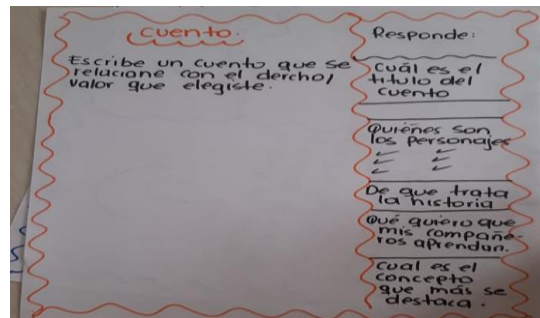 Cuento.
Escribe un cuento que se
relacione con el dercho/
valor que elegiste.
Responde:
Cuál es el
título del
cuento
Quiénes son
los personajes
De que trata
la historia
Qué quiero que
mis compañe-
ros aprendan.
Cual es el
concepto
que más se
destaca.